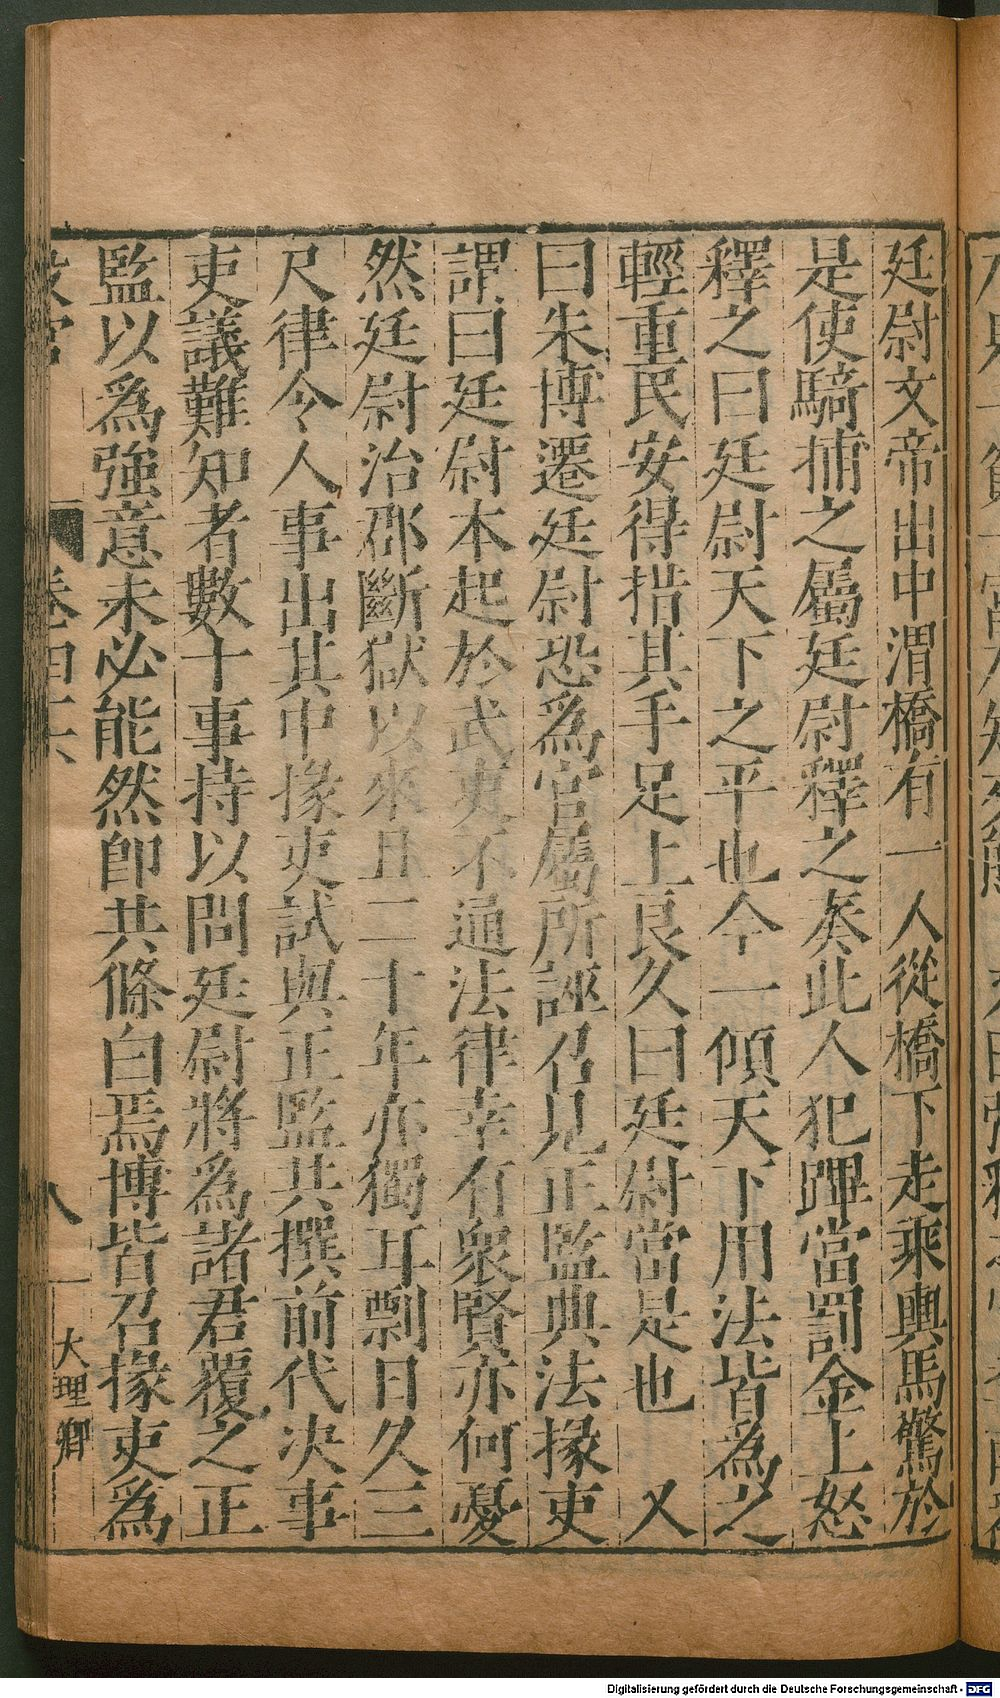 廷尉文帝出中渭橋有一人從橋下走乘輿馬驚於
是使騎捕之屬廷尉釋之奏此人犯蹕當罰金上怒
釋之曰廷尉天下之平也今一傾天下用法皆為之
輕重民安得措其手足上良久曰廷尉當是也 又
曰朱博遷廷尉恐為官屬所誣召見正監典法掾吏
謂曰廷尉本起於武吏不通法律幸有衆賢亦何憂
然廷尉治郡斷獄以來且二十年亦獨耳剽日久三
尺律令人事出其中掾吏試與正監共撰前代决事
吏議難知者數十事持以問廷尉將為諸君覆之正
監以為強意未必能然卽共條白焉博皆召掾吏為
卷四六
八
大理卿
Digitalisierung gefördert durch die Deutsche Forschungsgemeinschaft - DFG